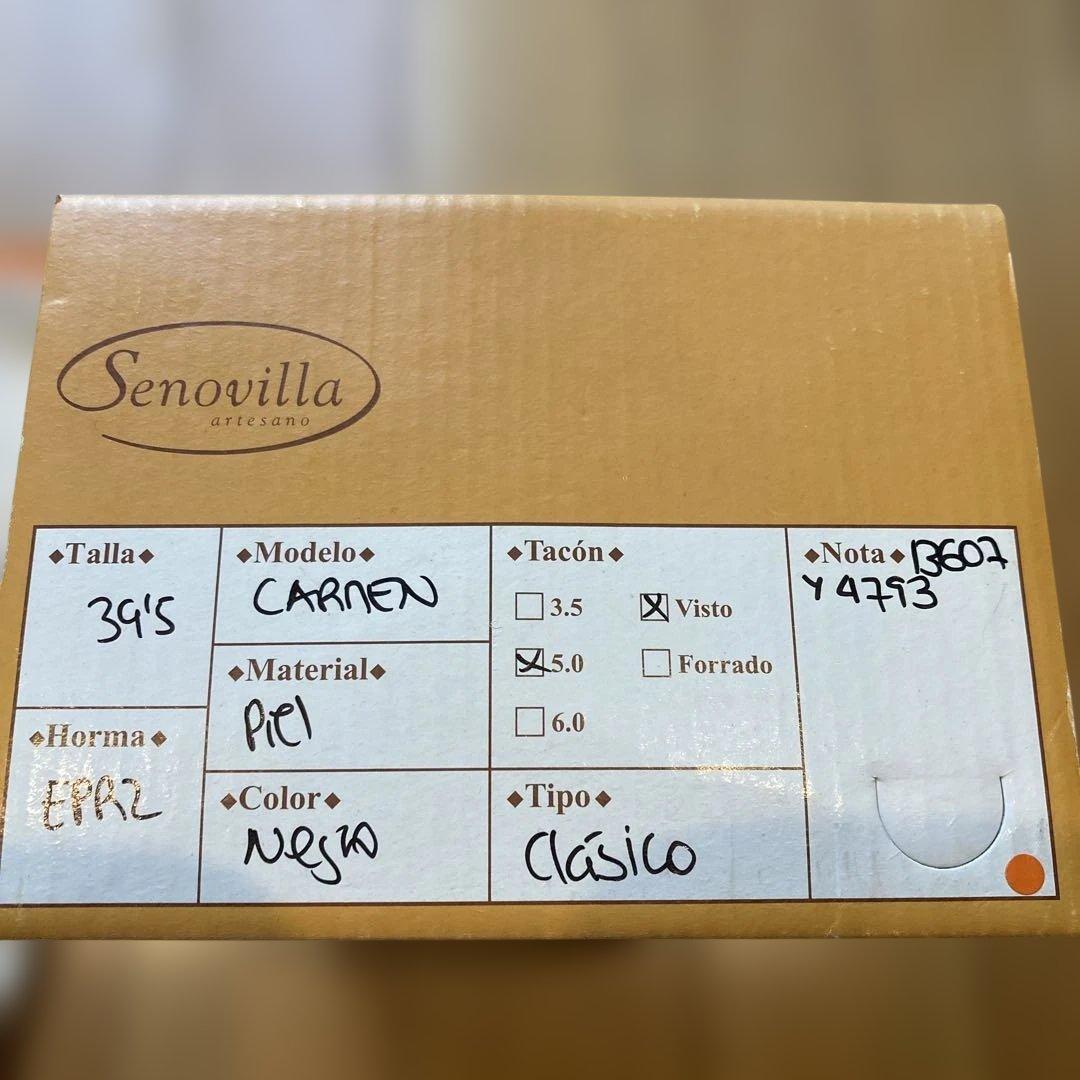 Senovilla
artesano
◆Talla◆
39'5
◆Horma◆
EPR2
◆Modelo◆
CARMEN
◆Material◆
Piel
◆Color◆
Negro
◆Tacón◆
3.5
Visto
5.0
Forrado
6.0
◆Tipo◆
Clásico
◆Nota◆ B607
Y4793